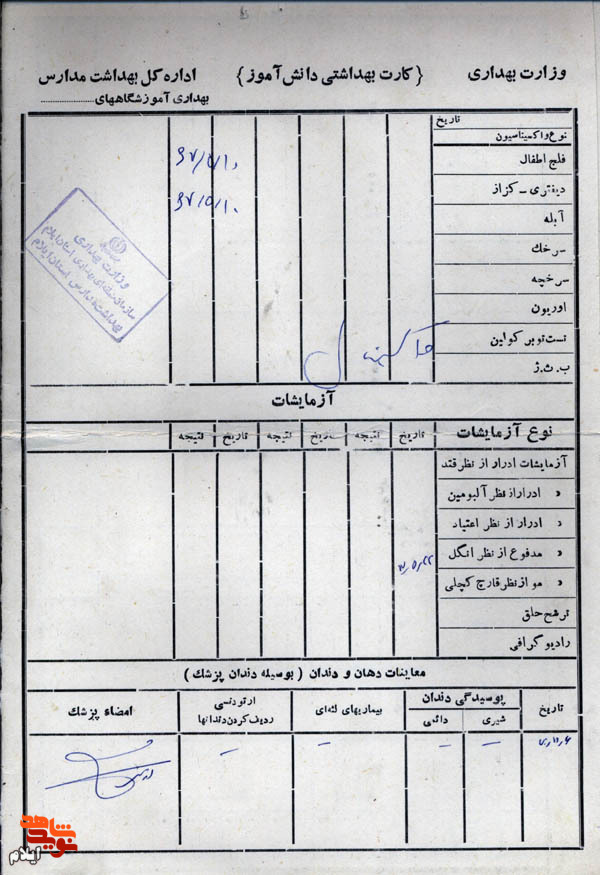 وزارت بهداری { کارت بهداشتی دانش آموز } اداره کل بهداشت مدارس
بهداری آموزشگاههای
تاریخ
نوع واکسیناسیون
فلج اطفال
دیفتری - کزاز
آبله
سرخك
سرخچه
اوریون
تست توبرکولین
ب.ث.ژ
وزارت بهداری
سازمان منطقه‌ای بهداری استان ایلام
بهداشت مدارس استان ایلام
آزمایشات
نوع آزمایشات تاریخ نتیجه تاریخ نتیجه تاریخ نتیجه
آزمایشات ادرار از نظر قند
« ادرار از نظر آلبومین
« ادرار از نظر اعتیاد
« مدفوع از نظر انگل
« مو از نظر قارچ کچلی
ترشح حلق
رادیوگرافی
معاینات دهان و دندان ( بوسیله دندان پزشك )
تاریخ پوسیدگی دندان بیماریهای لثه‌ای ارتودنسی امضاء پزشك
شیری دائمی ردیف کردن دندانها
شاهد
نوید
ایلام